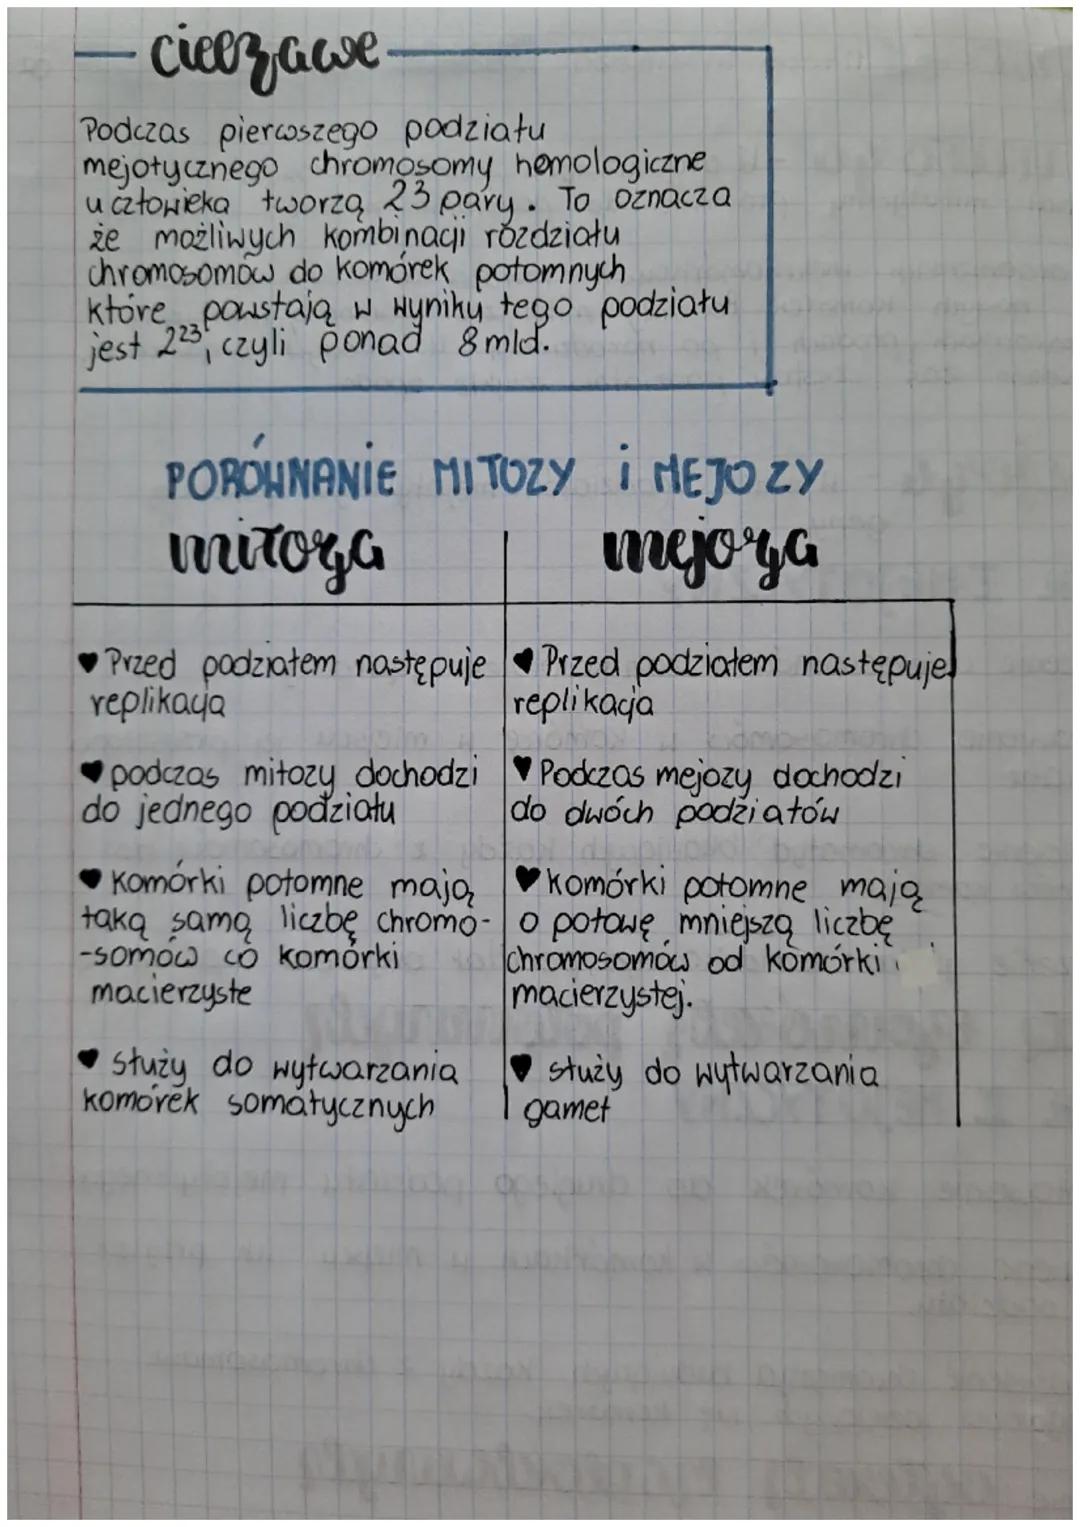 ciekawe
Podczas pierwszego podziału
mejotycznego chromosomy homologiczne
u człowieka tworzą 23 pary. To oznacza
że możliwych kombinacji rozdziału
chromosomów do komórek potomnych
które powstają w wyniku tego podziału
jest 2²³, czyli ponad 8 mld.
PORÓWNANIE MITOZY i MEJOZY
mitoza mejoza
♥ Przed podziałem następuje
replikacja
♥ podczas mitozy dochodzi
do jednego podziału
♥ Komórki potomne mają
taką samą liczbę chromo-
-somów co komórki
macierzyste
♥ służy do wytwarzania
komórek somatycznych
♥ Przed podziałem następuje
replikacja
♥ Podczas mejozy dochodzi
do dwóch podziałów
♥ Komórki potomne mają
o połowę mniejszą liczbę
chromosomów od komórki
macierzystej.
♥ służy do wytwarzania
gamet